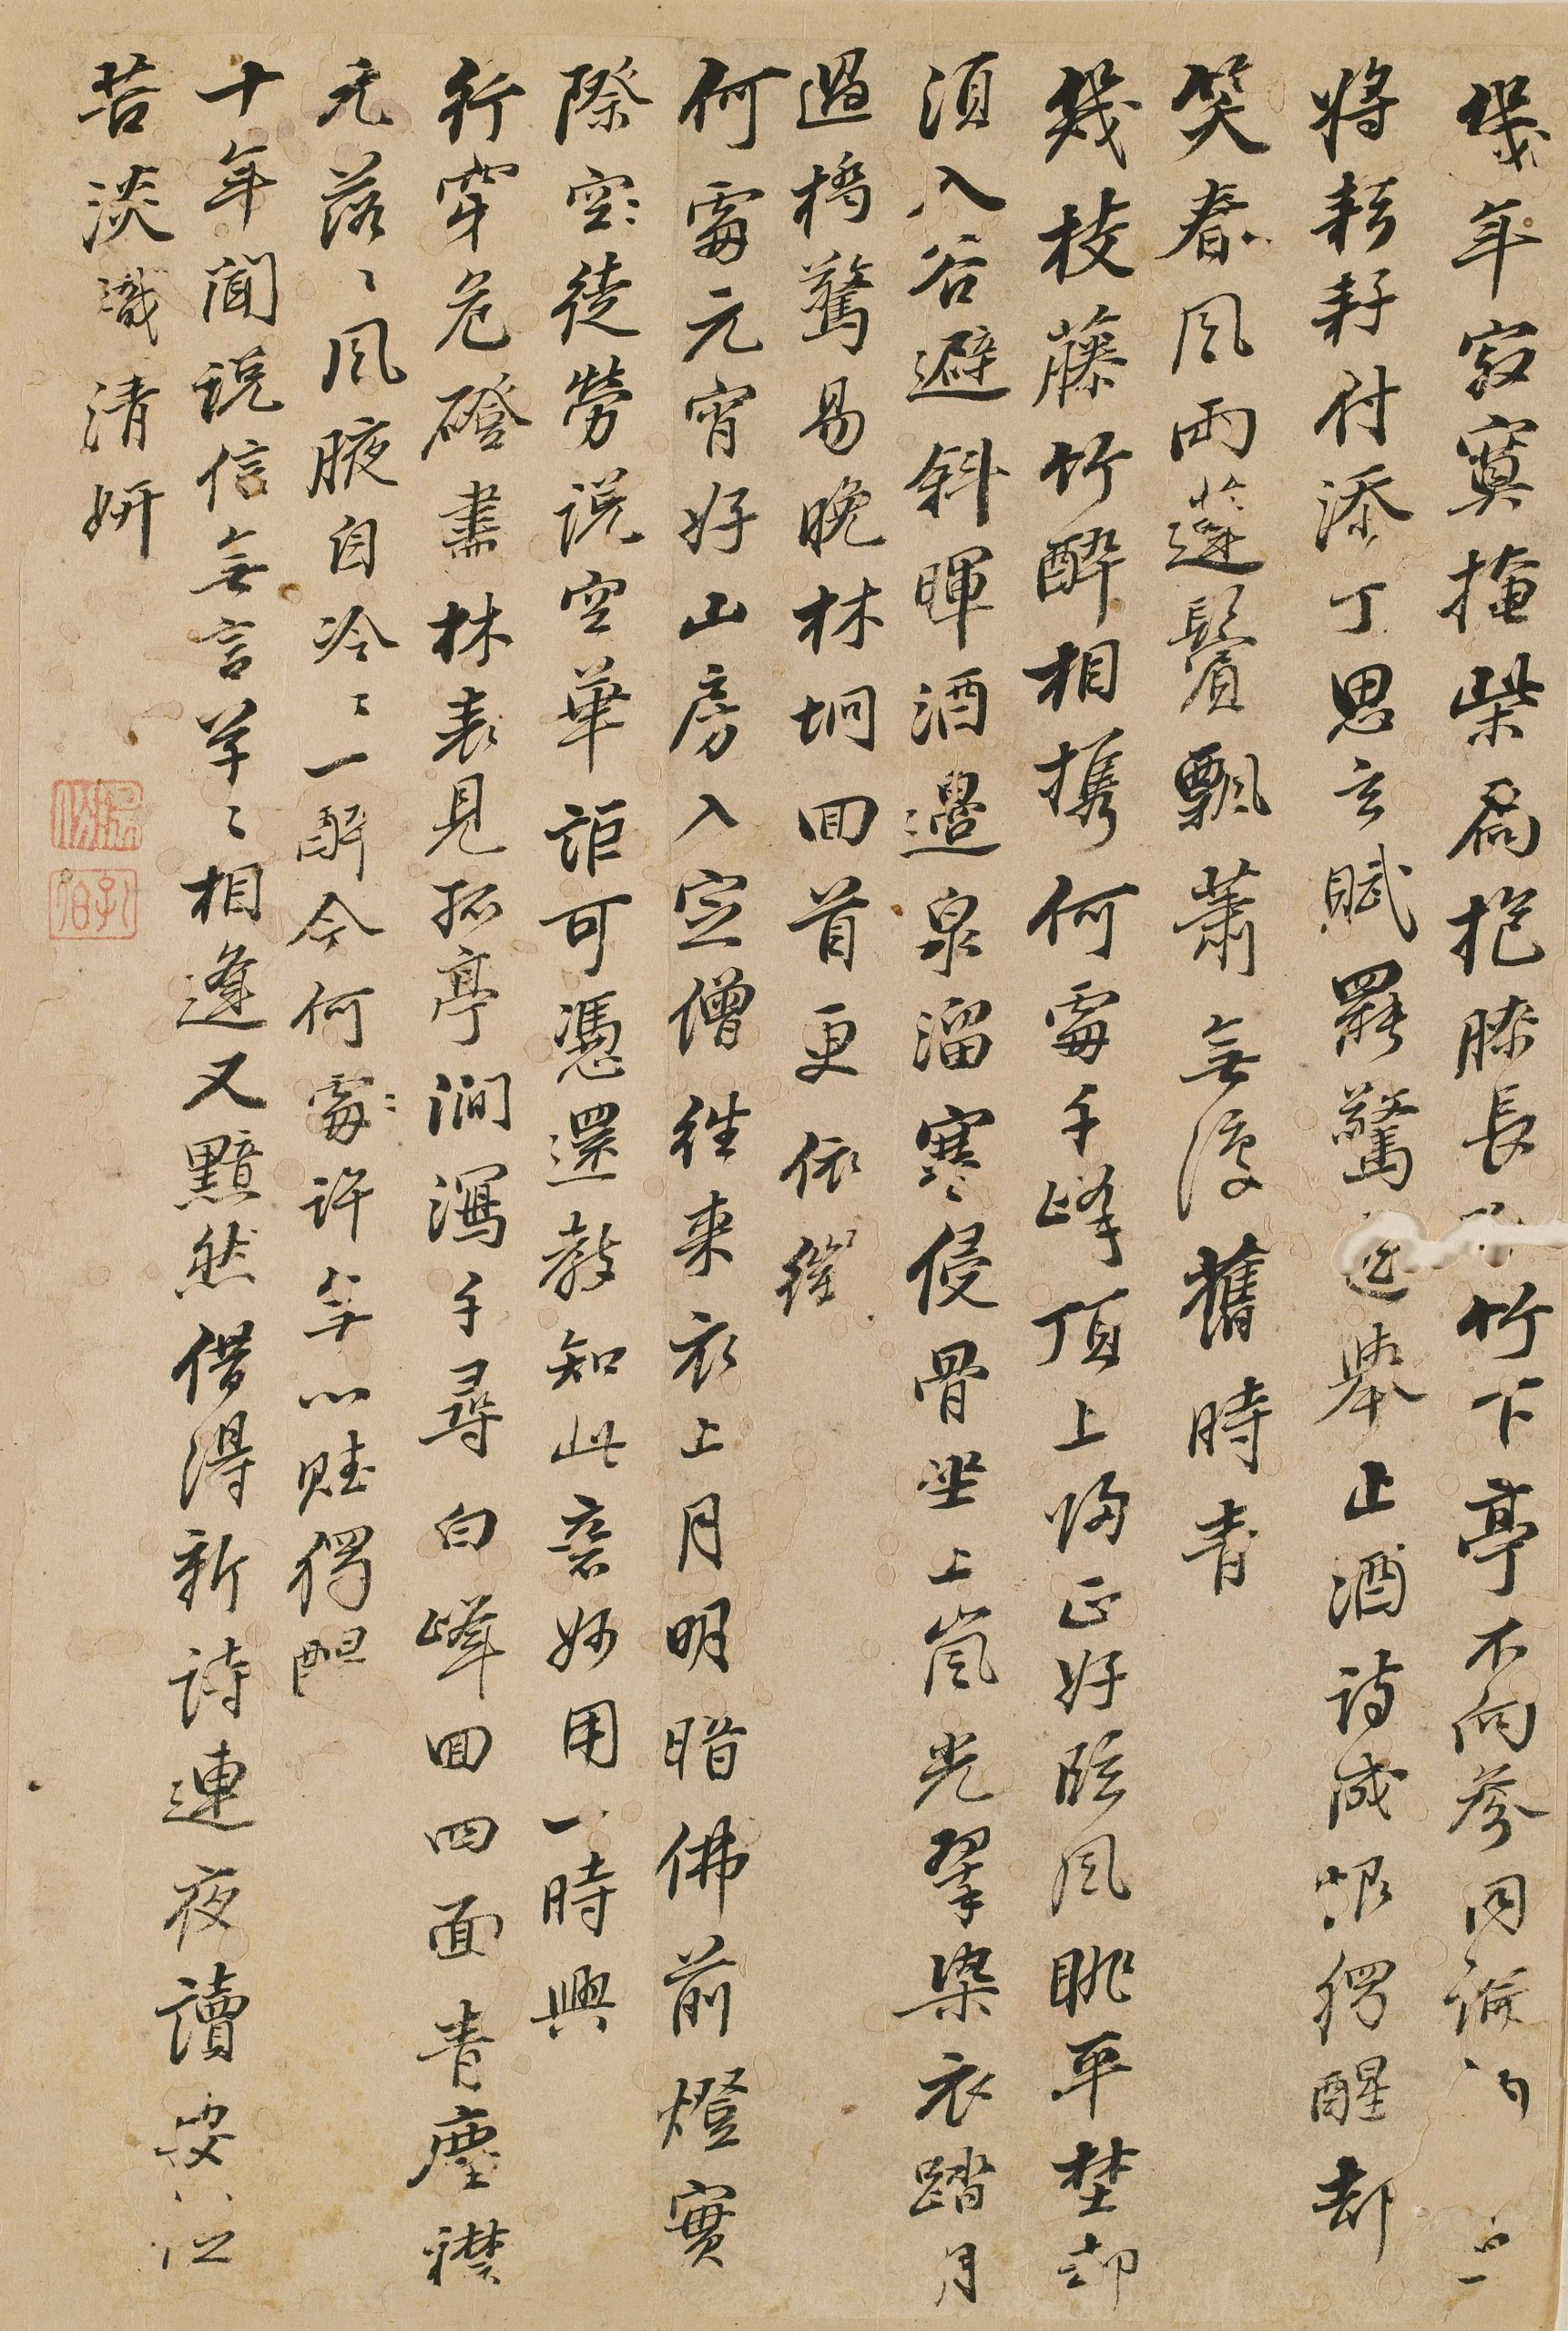 幾年寂寞掩柴扃抱膝長竹下亭不向參同論
將耘耔付添丁思玄賦罷驚舉止酒詩成恨獨醒却
笑春風雨蓬鬢飄蕭無復舊時青
幾枝藤竹醉相携何處千峰頂上歸正好臨風眺平埜却
須入谷避斜暉酒邊泉溜寒侵骨坐上嵐光翠染衣踏月
過橋驚易晚林坰回首更依
何處元宵好山房入定僧往來衣上月明暗佛前燈實
際空空徒勞說空華詎可憑還教知此意妙用一時興
行穿危磴盡林表見孤亭澗瀉千尋白峰回四面青塵襟
元落落風腋自冷冷一醉今何處許年心賭獨
十年聞說信無言草草相逢又黯然借得新詩連夜讀要從
苦淡識清妍